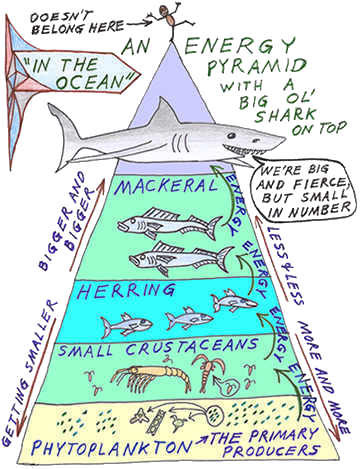 DOESN'T
BELONG HERE →
"IN THE
OCEAN"
AN ENERGY
PYRAMID
WITH A
BIG OL'
SHARK
ON TOP
WE'RE BIG
AND FIERCE,
BUT SMALL
IN NUMBER
BIGGER AND
BIGGER
GETTING SMALLER
MACKERAL
ENERGY
ENERGY
LESS & LESS
HERRING
ENERGY
MORE AND MORE
SMALL CRUSTACEANS
ENERGY
PHYTOPLANKTON → THE PRIMARY
PRODUCERS